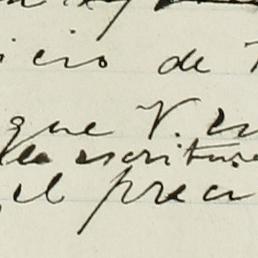 icio de
que V. en
la escritura
el preci